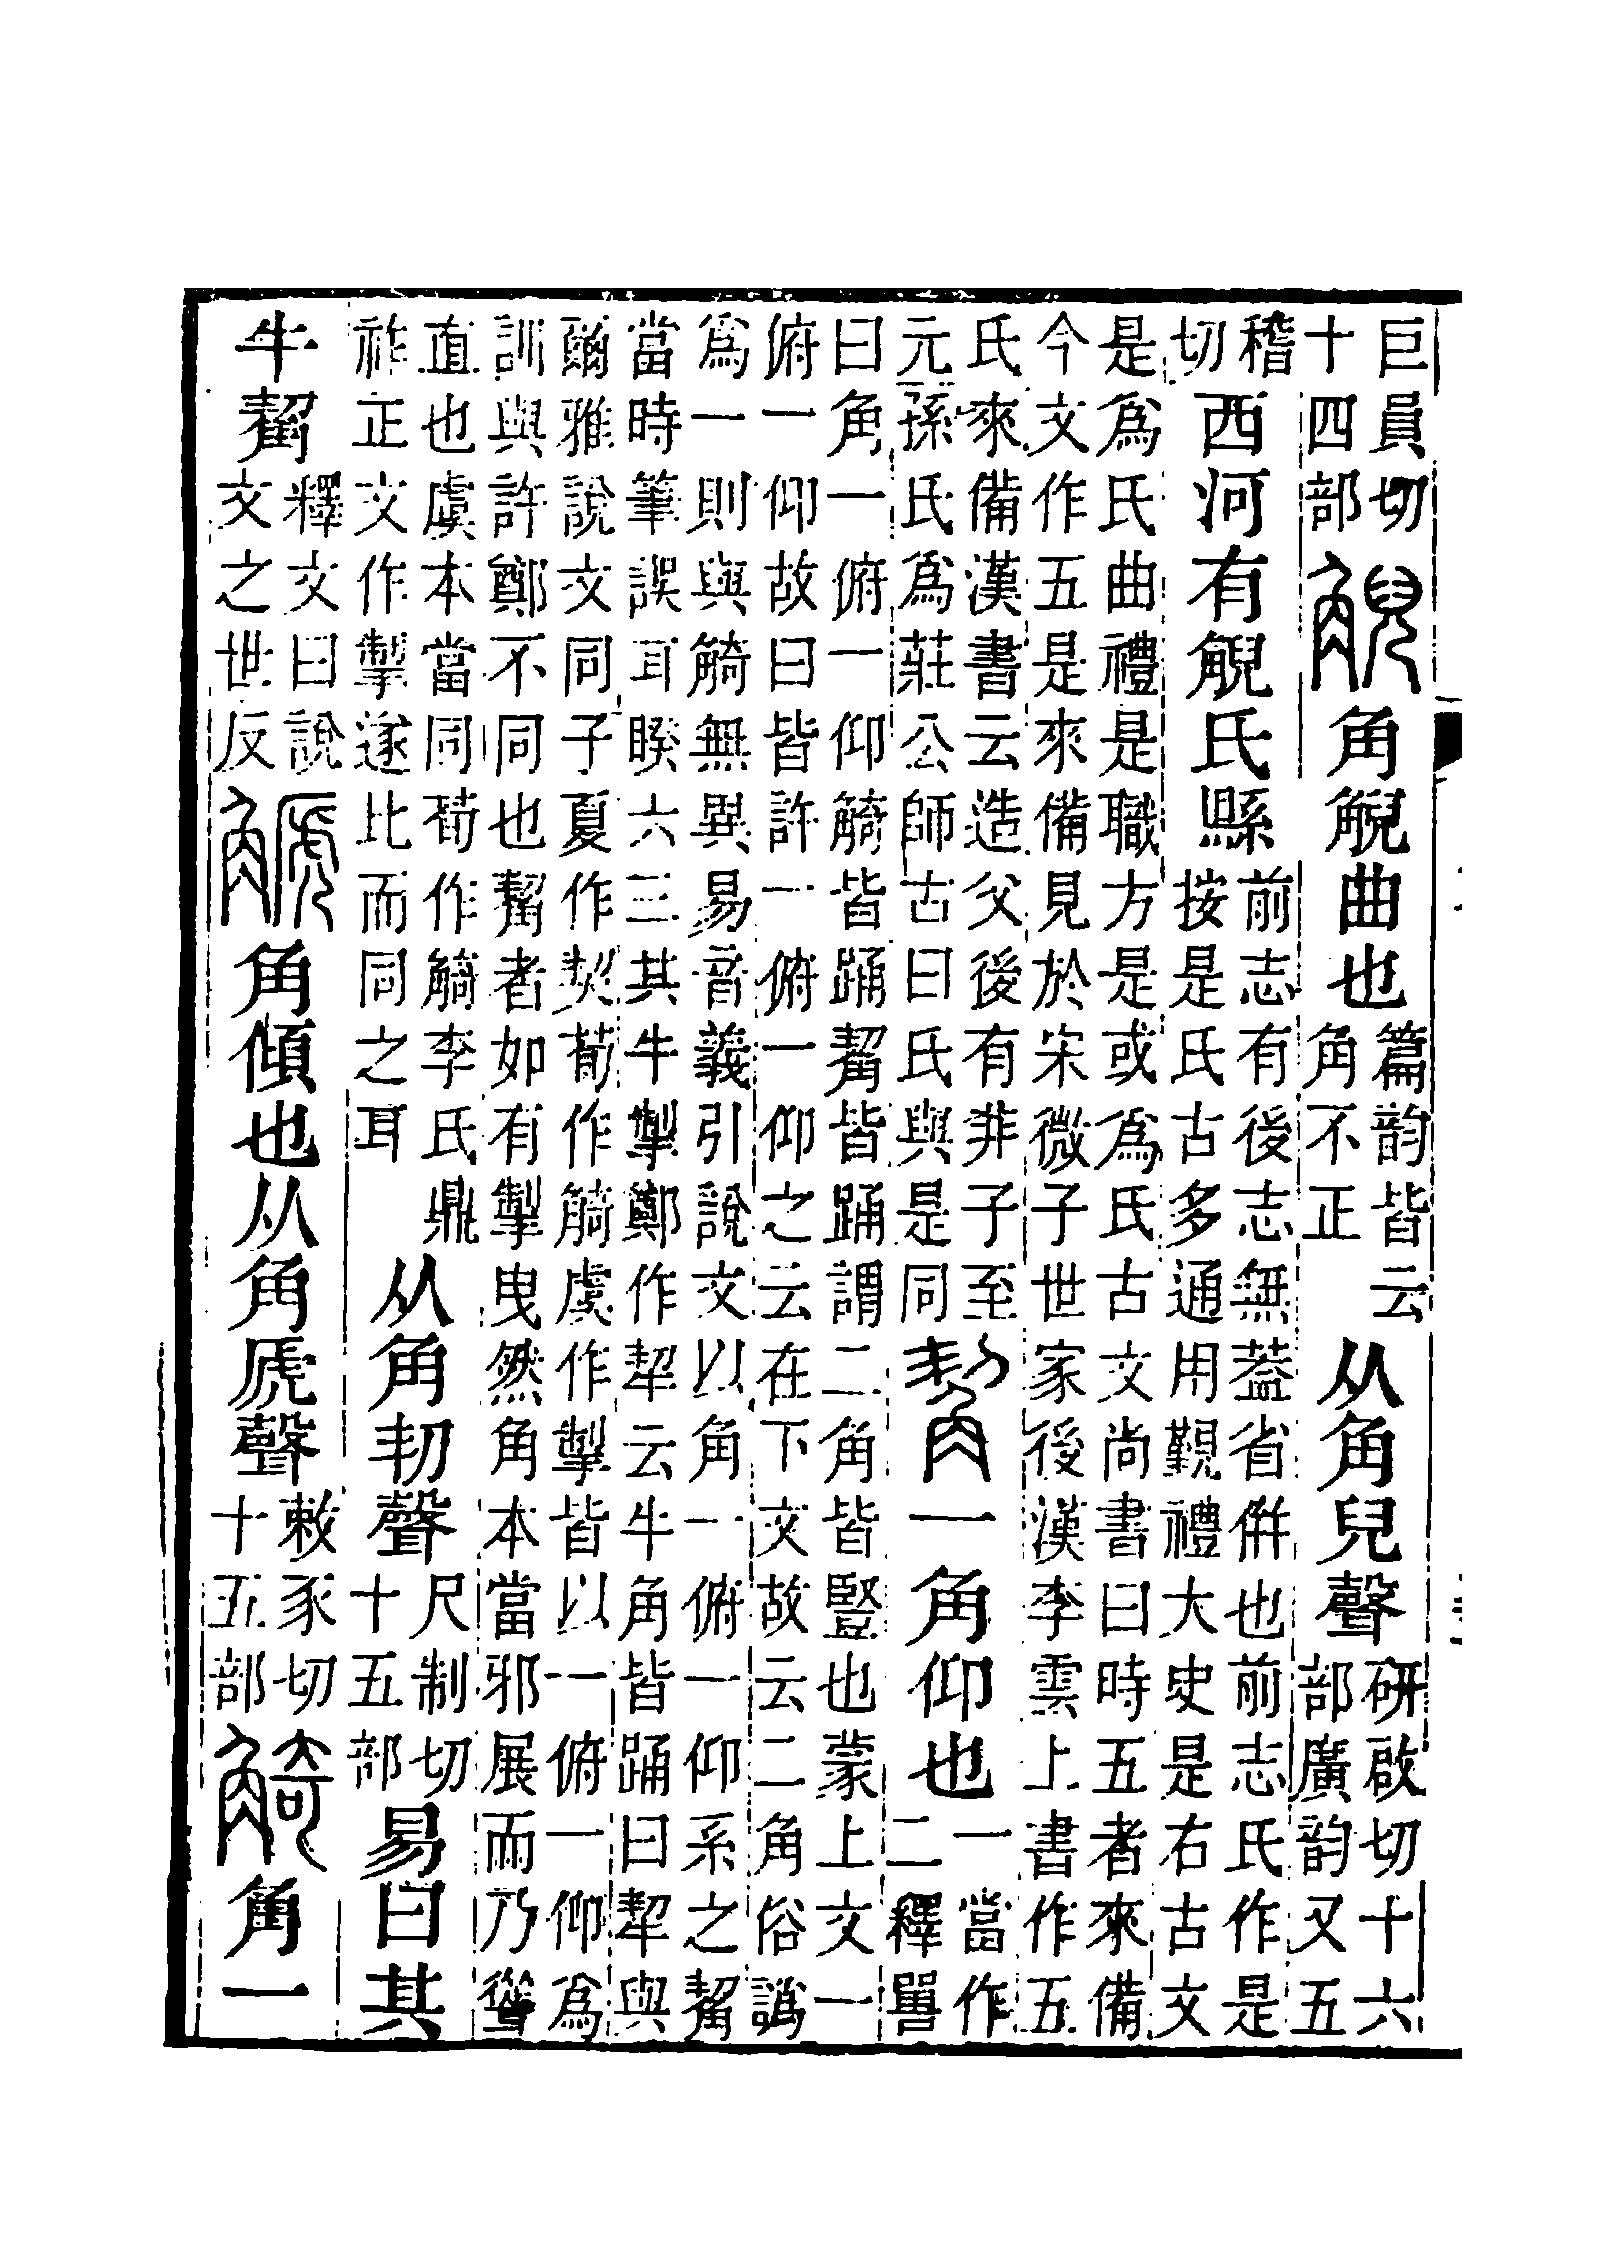 巨員切十四部觬角觬曲也篇韵皆云角不正从角兒聲研啟切十六部廣韵又五
稽切西河有觬氏縣前志有後志無蓋省併也前志氏作是按是氏古多通用覲禮大史是右古文
是爲氏曲禮是職方是或爲氏古文尚書曰時五者來備今文作五是來備見於宋微子世家後漢李雲上書作五
氏來備漢書云造父後有非子至元孫氏爲莊公師古曰氏與是同觢一角仰也一當作二釋嘼
曰角一俯一仰觭皆踊觢皆踊謂二角皆豎也蒙上文一俯一仰故曰皆許一俯一仰之云在下文故云二角俗譌
爲一則與觭無異易音義引說文以角一俯一仰系之觢當時筆誤耳睽六三其牛掣鄭作㸷云牛角皆踊曰㸷與
爾雅說文同子夏作契荀作觭虞作掣皆以一俯一仰爲訓與許鄭不同也觢者如有掣曳然角本當邪展而乃聳
直也虞本當同荀作觭李氏鼎祚正文作掣遂比而同之耳从角㓞聲尺制切十五部易曰其
牛觢釋文曰說文之世反䚦角傾也从角虒聲敕豕切十五部觭角一